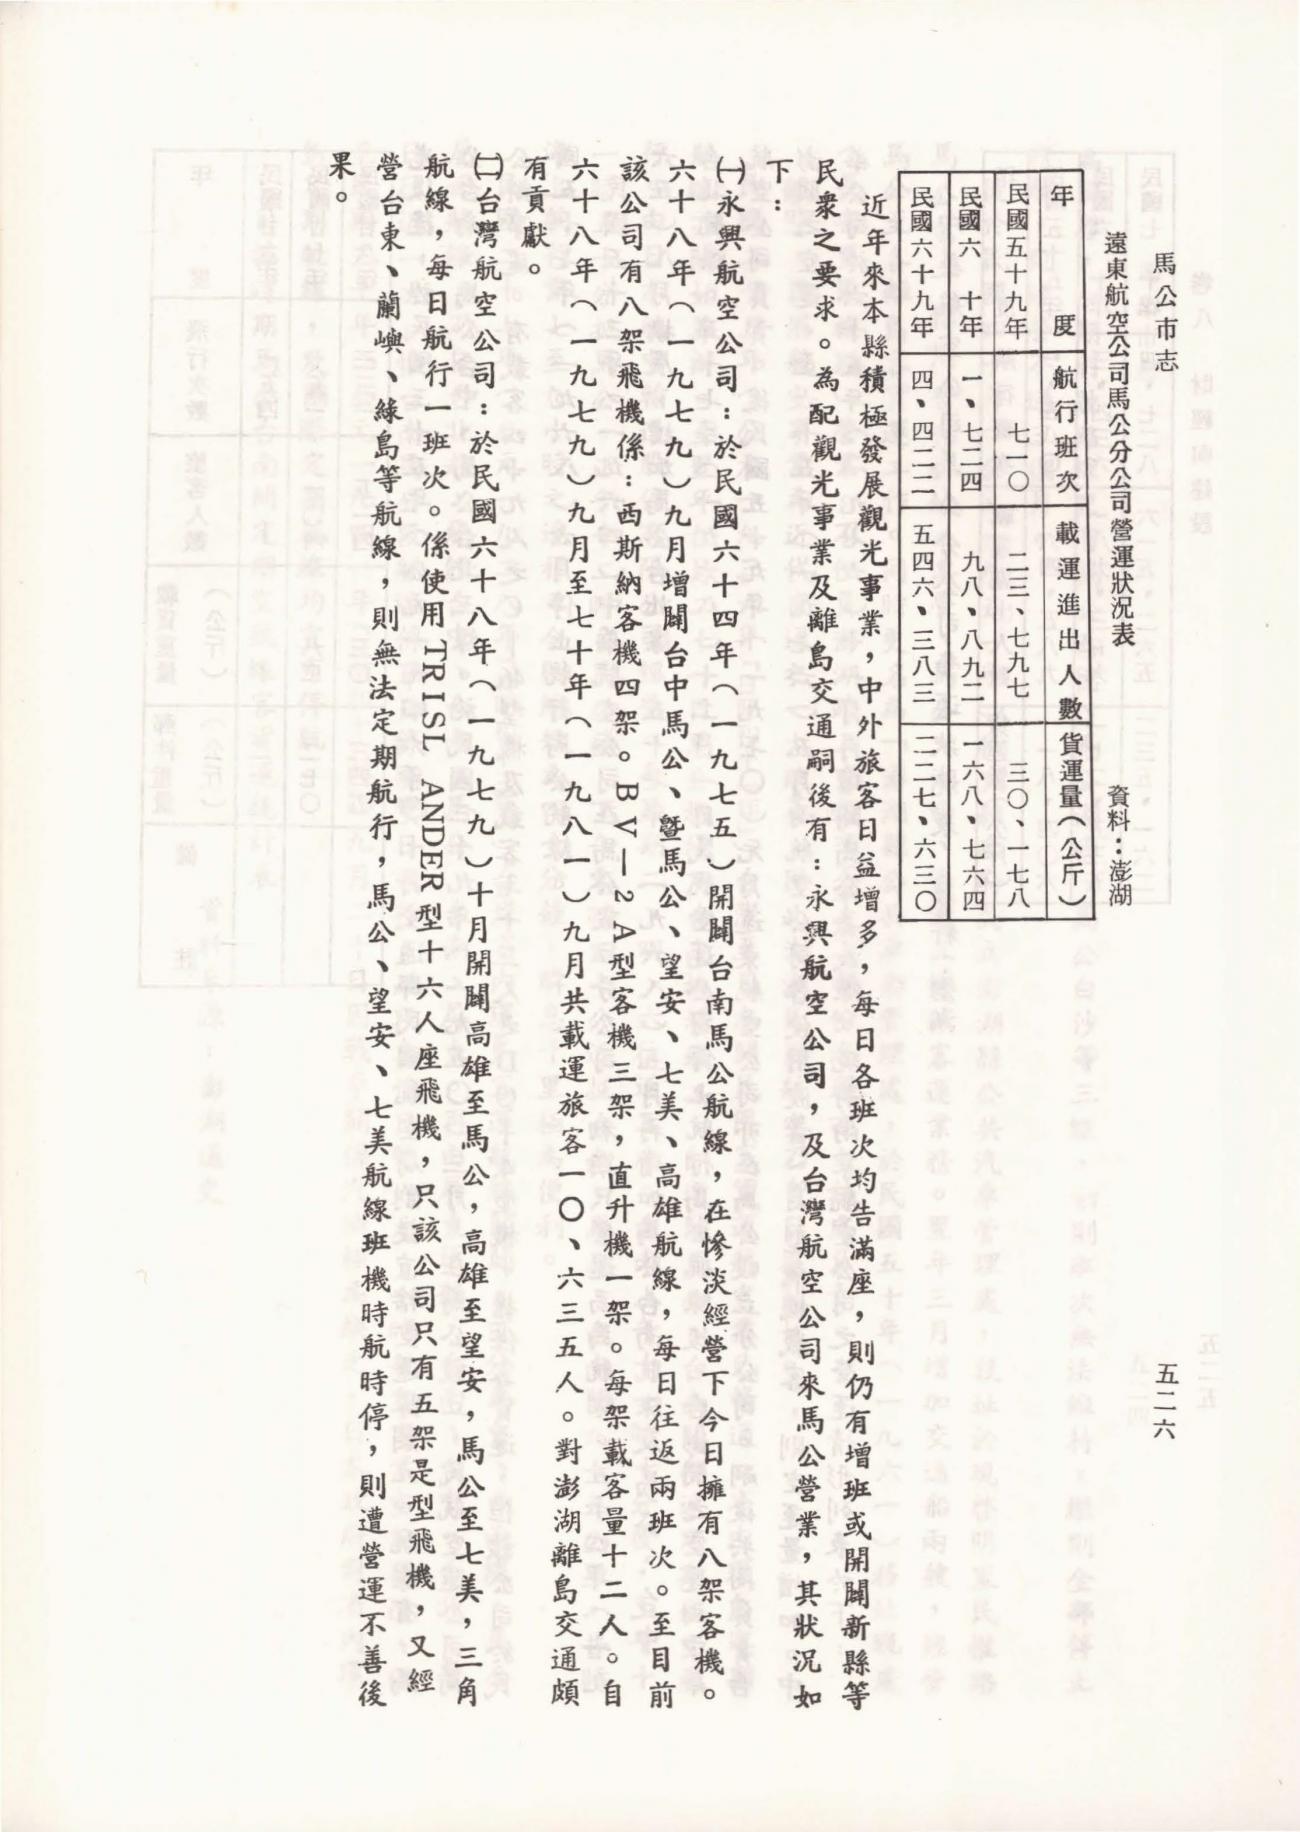 馬公市志
五二六
遠東航空公司馬公分公司營運狀況表　資料：澎湖
年度　航行班次　載運進出人數　貨運量（公斤）
民國五十九年　七一〇　二三、七九七　三〇、一七八
民國六十年　一、七二四　九八、八九二　一六八、七六四
民國六十九年　四、四二二　五四六、三八三　二二七、六三〇
近年來本縣積極發展觀光事業，中外旅客日益增多，每日各班次均告滿座，則仍有增班或開闢新縣等
民衆之要求。為配觀光事業及離島交通嗣後有：永興航空公司，及台灣航空公司來馬公營業，其狀況如
下：
㈠永興航空公司：於民國六十四年（一九七五）開闢台南馬公航線，在慘淡經營下今日擁有八架客機。
六十八年（一九七九）九月增闢台中馬公、暨馬公、望安、七美、高雄航線，每日往返兩班次。至目前
該公司有八架飛機係：西斯納客機四架。BV—2A型客機三架，直升機一架。每架載客量十二人。自
六十八年（一九七九）九月至七十年（一九八一）九月共載運旅客一〇、六三五人。對澎湖離島交通頗
有貢獻。
㈡台灣航空公司：於民國六十八年（一九七九）十月開闢高雄至馬公，高雄至望安，馬公至七美，三角
航線，每日航行一班次。係使用TRISL ANDER型十六人座飛機，只該公司只有五架是型飛機，又經
營台東、蘭嶼、綠島等航線，則無法定期航行，馬公、望安、七美航線班機時航時停，則遭營運不善後
果。